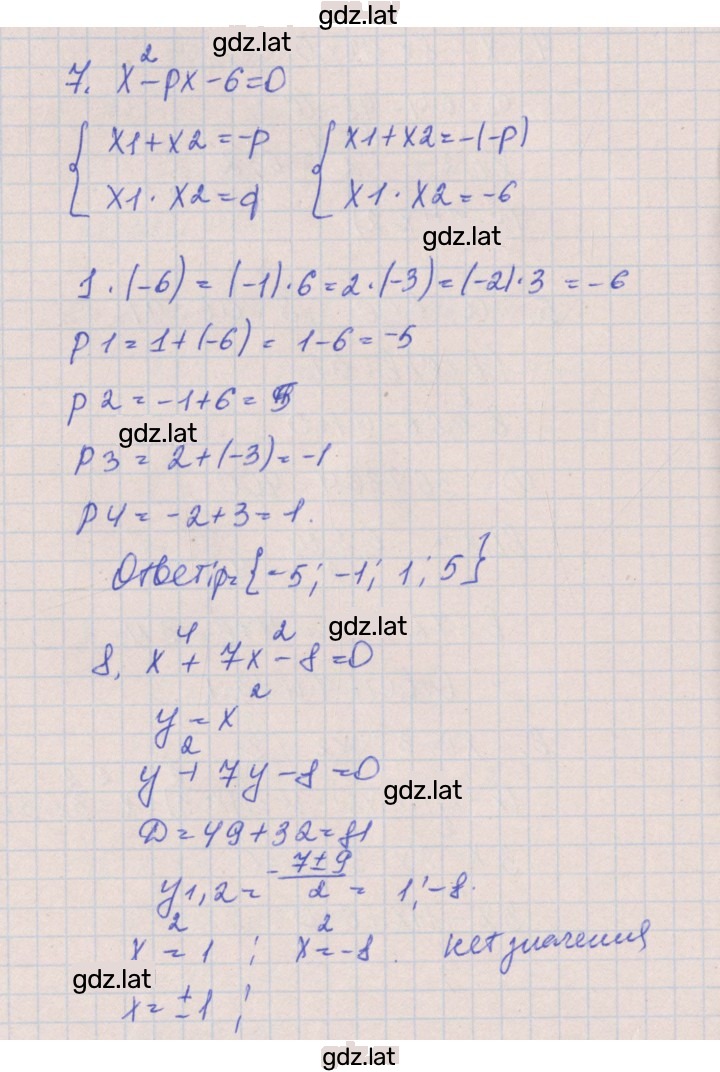 gdz.lat
gdz.lat
7. x² - px - 6 = 0
{ x1 + x2 = -p { x1 + x2 = -(-p)
x1 · x2 = q x1 · x2 = -6
gdz.lat
1 · (-6) = (-1) · 6 = 2 · (-3) = (-2) · 3 = -6
p1 = 1 + (-6) = 1 - 6 = -5
p2 = -1 + 6 = 5
gdz.lat
p3 = 2 + (-3) = -1
p4 = -2 + 3 = 1.
Ответ: p = {-5; -1; 1; 5}
gdz.lat
8. x⁴ + 7x² - 8 = 0
y = x²
y² + 7y - 8 = 0
gdz.lat
D = 49 + 32 = 81
y1,2 = -7±9/2 = 1; -8.
x² = 1 ; x² = -8. нет значения
gdz.lat
x = ±1 ;
gdz.lat